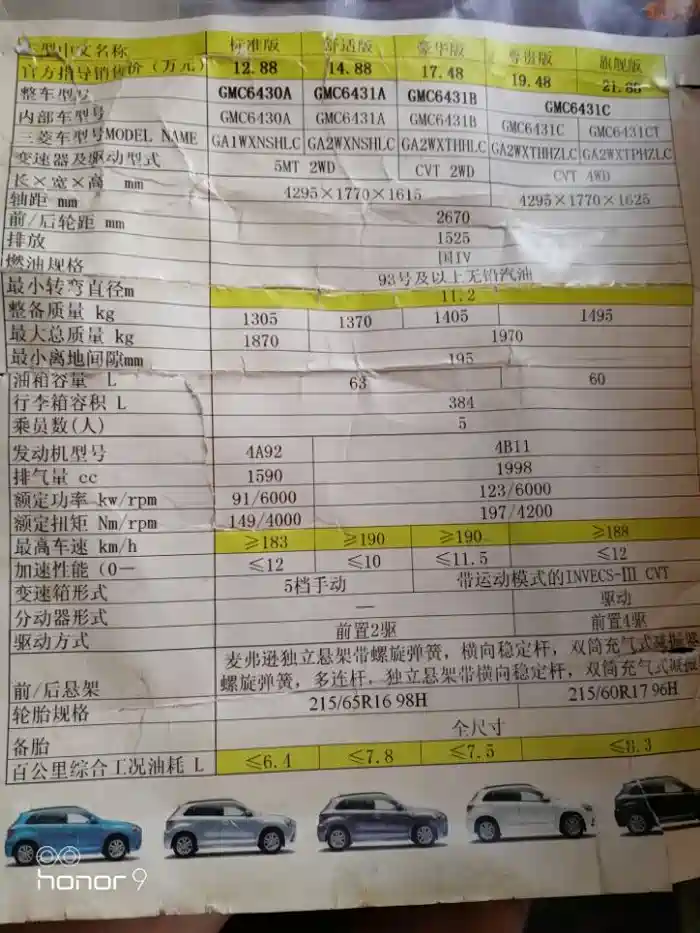 车型中文名称 标准版 舒适版 豪华版 尊贵版 旗舰版
官方指导销售价（万元） 12.88 14.88 17.48 19.48 21.88
整车型号 GMC6430A GMC6431A GMC6431B GMC6431C
内部车型号 GMC6430A GMC6431A GMC6431B GMC6431C GMC6431CT
三菱车型号MODEL NAME GA1WXNSHLC GA2WXNSHLC GA2WXTHHLC GA2WXTHHZLC GA2WXTPHZLC
变速器及驱动型式 5MT 2WD CVT 2WD CVT 4WD
长×宽×高 mm 4295×1770×1615 4295×1770×1625
轴距 mm 2670
前/后轮距 mm 1525
排放 国IV
燃油规格 93号及以上无铅汽油
最小转弯直径m 11.2
整备质量 kg 1305 1370 1405 1495
最大总质量 kg 1870 1970
最小离地间隙mm 195
油箱容量 L 63 60
行李箱容积 L 384
乘员数(人) 5
发动机型号 4A92 4B11
排气量 cc 1590 1998
额定功率 kw/rpm 91/6000 123/6000
额定扭矩 Nm/rpm 149/4000 197/4200
最高车速 km/h ≥183 ≥190 ≥190 ≥188
加速性能（0— ≤12 ≤10 ≤11.5 ≤12
变速箱形式 5档手动 带运动模式的INVECS-III CVT
分动器形式 — 驱动
驱动方式 前置2驱 前置4驱
前/后悬架 麦弗逊独立悬架带螺旋弹簧，横向稳定杆，双筒充气式减振器
螺旋弹簧，多连杆，独立悬架带横向稳定杆，双筒充气式减振
轮胎规格 215/65R16 98H 215/60R17 96H
备胎 全尺寸
百公里综合工况油耗 L ≤6.4 ≤7.8 ≤7.5 ≤8.3
honor 9